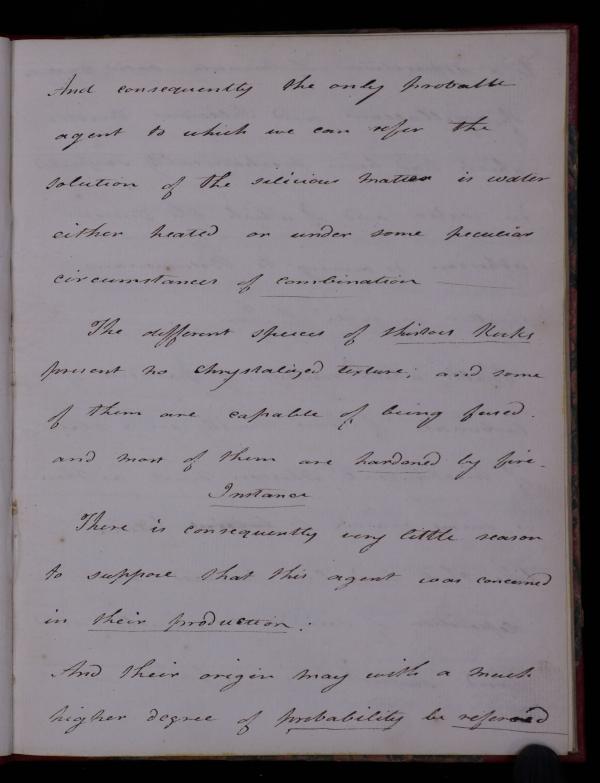 And consequently the only probable
agent to which we can refer the
solution of the silicious matter is water
either heated or under some peculiar
circumstances of combination
The different species of shistose Rocks
present no chrystalized texture; and some
of them are capable of being fused.
and most of them are hardened by fire.
Instance
There is consequently very little reason
to suppose that this agent was concerned
in their production:
And their origin may with a much
higher degree of probability be referred